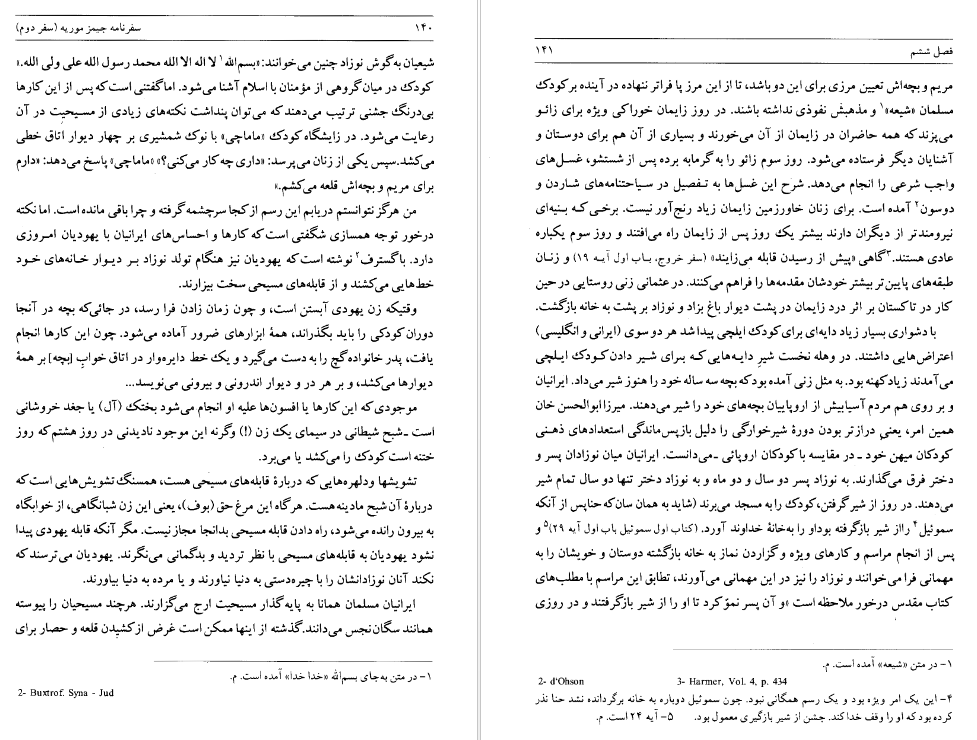 ۱۴۰ سفرنامه جیمز موریه (سفر دوم)
شیعیان به‌گوش نوزاد چنین می‌خوانند: «بسم‌الله۱ لا اله الا الله محمد رسول الله علی ولی الله.»
کودک در میان‌گروهی از مؤمنان با اسلام آشنا می‌شود. اماگفتنی است‌که پس از این کارها
بی‌درنگ جشنی ترتیب می‌دهندکه می‌توان پنداشت نکته‌های زیادی از مسیحیت در آن
رعایت می‌شود. در زایشگاه کودک «ماماچی» با نوک شمشیری بر چهار دیوار اتاق خطی
می‌کشد.سپس یکی از زنان می‌پرسد: «داری چه‌کار می‌کنی؟» «ماماچی» پاسخ می‌دهد: «دارم
برای مریم و بچه‌اش قلعه می‌کشم.»
من هرگز نتوانستم دریابم این رسم ازکجا سرچشمه‌گرفته و چرا باقی مانده است. اما نکته
درخور توجه همسازی شگفتی است‌که کارها و احساس‌های ایرانیان با یهودیان امروزی
دارد. باگسترف۲ نوشته است‌که یهودیان نیز هنگام تولد نوزاد بر دیوار خانه‌های خود
خط‌هایی می‌کشند و از قابله‌های مسیحی سخت بیزارند.
وقتیکه زن یهودی آبستن است، و چون زمان زادن فرا رسد، در جائی‌که بچه در آنجا
دوران‌کودکی را باید بگذراند، همهٔ ابزارهای ضرور آماده می‌شود. چون این کارها انجام
یافت، پدر خانواده‌گچ را به دست می‌گیرد و یک خط دایره‌وار در اتاق خوابِ [بچه] بر همهٔ
دیوارها می‌کشد، و بر هر در و دیوار اندرونی و بیرونی می‌نویسد...
موجودی‌که این کارها یا افسون‌ها علیه او انجام می‌شود بختک (آل) یا جغد خروشانی
است ـ شبح شیطانی در سیمای یک زن (!) وگرنه این موجود نادیدنی در روز هشتم‌که روز
ختنه است‌کودک را می‌کشد یا می‌برد.
تشویشها ودلهره‌هایی که دربارهٔ قابله‌های مسیحی هست، همسنگ تشویش‌هایی است‌که
دربارهٔ آن شبح مادینه‌هست. هرگاه این مرغ حق (بوف)، یعنی این زن شبانگاهی، از خوابگاه
به بیرون رانده می‌شود، راه دادن قابله مسیحی بدانجا مجاز نیست. مگر آنکه قابله یهودی پیدا
نشود یهودیان به قابله‌های مسیحی با نظر تردید و بدگمانی می‌نگرند. یهودیان می‌ترسندکه
نکند آنان نوزادانشان را با چیره‌دستی به دنیا نیاورند و یا مرده به دنیا بیاورند.
ایرانیان مسلمان همانا به پایه‌گذار مسیحیت ارج می‌گزارند. هرچند مسیحیان را پیوسته
همانند سگان نجس می‌دانند.گذشته از اینها ممکن است غرض ازکشیدن قلعه و حصار برای
۱- در متن به‌جای بسم‌الله «خدا خدا» آمده است. م.
2- Buxtrof. Syna - Jud
فصل ششم ۱۴۱
مریم و بچه‌اش تعیین مرزی برای این دو باشد، تا از این مرز پا فراتر ننهاده در آینده برکودک
مسلمان «شیعه»۱ و مذهبش نفوذی نداشته باشند. در روز زایمان خوراکی ویژه برای زائو
می‌پزندکه همه حاضران در زایمان از آن می‌خورند و بسیاری از آن هم برای دوستان و
آشنایان دیگر فرستاده می‌شود. روز سوم زائو را به گرمابه برده پس از شستشو، غسل‌های
واجب شرعی را انجام می‌دهد. شرح این غسل‌ها به تفصیل در سیاحتنامه‌های شاردن و
دوسون۲ آمده است. برای زنان خاورزمین زایمان زیاد رنج‌آور نیست. برخی‌که بنیه‌ای
نیرومندتر از دیگران دارند بیشتر یک روز پس از زایمان راه می‌افتند و روز سوم یکباره
عادی هستند.۳ گاهی «پیش از رسیدن قابله می‌زایند» (سفر خروج، باب اول آیه ۱۹) و زنان
طبقه‌های پایین‌تر بیشتر خودشان مقدمه‌ها را فراهم می‌کنند. در عثمانی زنی روستایی در حین
کار در تاکستان بر اثر درد زایمان در پشت دیوار باغ بزاد و نوزاد بر پشت به خانه بازگشت.
با دشواری بسیار زیاد دایه‌ای برای کودک ایلچی پیدا شد هر دو سوی (ایرانی و انگلیسی)
اعتراض‌هایی داشتند. در وهله نخست شیرِ دایه‌هایی‌که برای شیر دادن کودک ایلچی
می‌آمدند زیادکهنه بود. به مثل زنی آمده بودکه بچه سه ساله خود را هنوز شیر می‌داد. ایرانیان
و بر روی هم مردم آسیابیش از اروپاییان بچه‌های خود را شیر می‌دهند. میرزا ابوالحسن خان
همین امر، یعنی درازتر بودن دورهٔ شیرخوارگی را دلیل بازپس‌ماندگی استعدادهای ذهنی
کودکان میهن خود ـ در مقایسه با کودکان اروپائی ـ می‌دانست. ایرانیان میان نوزادان پسر و
دختر فرق می‌گذارند. به نوزاد پسر دو سال و دو ماه و به نوزاد دختر تنها دو سال تمام شیر
می‌دهند. در روز از شیر گرفتن،کودک را به مسجد می‌برند (شاید به همان سان‌که حناپس از آنکه
سموئیل۴ رااز شیر بازگرفته بوداو را به‌خانهٔ خداوند آورد. (کتاب اول سموئیل باب اول آیه ۲۹)۵ و
پس از انجام مراسم و کارهای ویژه و گزاردن نماز به خانه بازگشته دوستان و خویشان را به
مهمانی فرا می‌خوانند و نوزاد را نیز در این مهمانی می‌آورند، تطابق این مراسم با مطلب‌های
کتاب مقدس درخور ملاحظه است «و آن پسر نموّ کرد تا او را از شیر بازگرفتند و در روزی
۱- در متن «شیعه» آمده است. م.
2- d'Ohson 3- Harmer, Vol. 4, p. 434
۴- این یک امر ویژه بود و یک رسم همگانی نبود. چون سموئیل دوباره به خانه برگردانده نشد حنا نذر
کرده بود که او را وقف خدا کند. جشن از شیر بازگیری معمول بود. ۵- آیه ۲۴ است. م.